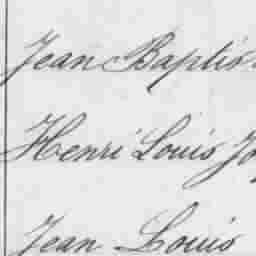 Jean Baptis
Henri Louis Jo
Jean Louis